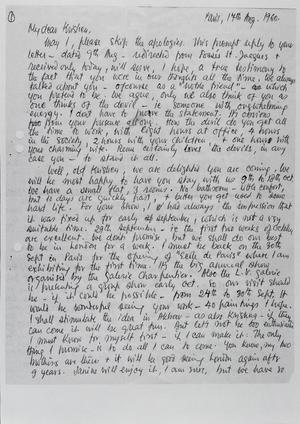 ①
Paris, 14th Aug. 1960.
My dear
May I, please skip the apologies. This prompt reply to your
letter - dated 9th Aug - redirected from Fossés St. Jacques &
received only today, will serve, I hope, as a true testimony to
the fact that you were in our thoughts all the time. We always
talked about you - of course as a "noble friend" - as which
you posted to be - we agree. Only we also think of you as
one thinks of the devil - ie someone with overwhelming
energy. I don't have to prove the statement, it's obvious
too from your present effort. How the devil do you get all
the time to work, with eight hours at office, 4 hours
in the society, 2 hours with your children, & one hour with
your charming wife. Some certainly loves the devils, in any
case you - to stand it all.
Well, old Krishen, we are delighted you are coming. We
will be most happy to have you stay with us 9th to 12th Oct.
We have a small flat, 2 rooms. No bathroom - little comfort,
but 3 days are quickly past, & better you get used to some
hard life. For your show, I had always the impression that
it was fixed up for early of September, which is not a very
suitable time. 29th September - ie the first two weeks of October,
are excellent. We don't promise, but we shall do our best
to be in London for a week. I must be back on the 30th
Sept in Paris for the opening of "Ecole de Paris" where I am
exhibiting for the first time. It's the big annual show
organised by the Galerie Charpentier. Also the L.V. Galerie
is presenting a group show early Oct. So our visit should
be - if it could be possible - from 24th to 30th Sept. It
would be wonderful seeing your work - 40 paintings I hope.
I shall stimulate the idea in Akbar - as also Krishna - if they
can come it will be great fun. But let's not be too enthusiastic
I must know for myself first - if I can make it. The only
thing I promise - is to do all I can to come. You know, my two
brothers are there & it will be good seeing London again after
9 years. Janine will enjoy it, I am sure, but we have no